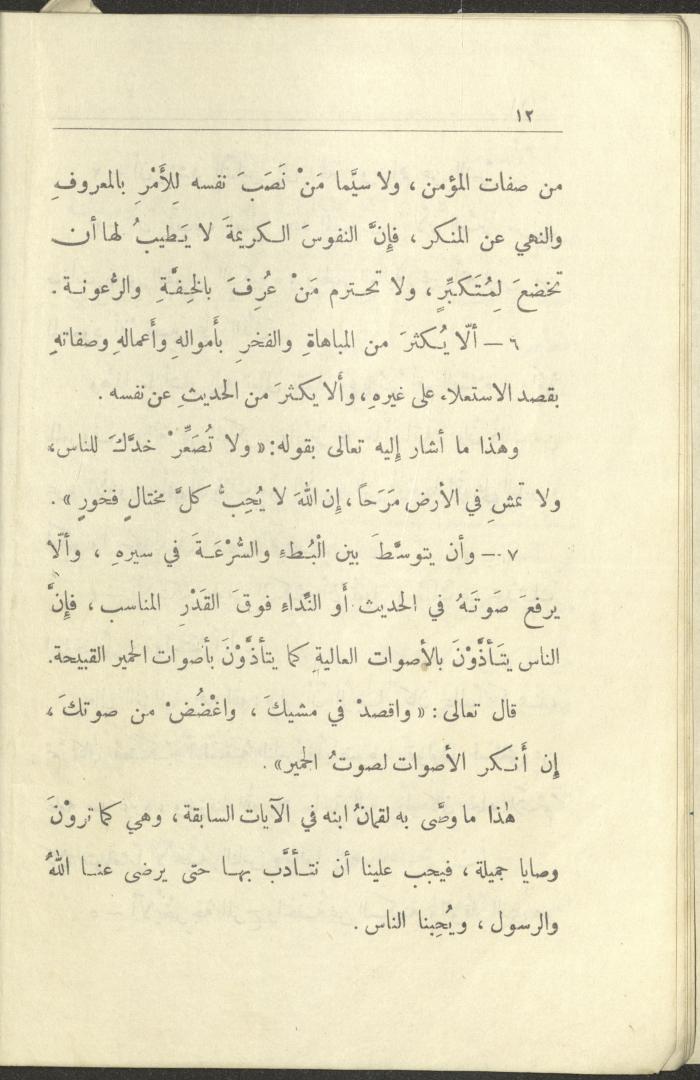 ١٢
من صفات المؤمن ، ولا سيَّما مَنْ نَصَبَ نفسه لِلأَمْرِ بالمعروفِ
والنهي عن المنكر ، فإِنَّ النفوسَ الكريمةَ لا يَطيبُ لها أن
تخضعَ لِمُتَكبِّرٍ ، ولا تحترم مَنْ عُرِفَ بالخِفَّةِ والرُّعونة .
٦ — ألّا يُكثرَ من المباهاةِ والفخرِ بأموالهِ وأعمالهِ وصفاتهِ
بقصد الاستعلاء على غيرهِ ، وألا يكثرَ من الحديثِ عن نفسه .
وهٰذا ما أشار إليه تعالى بقوله : « ولا تُصَعِّرْ خدَّكَ للناس ،
ولا تمشِ في الأرض مَرَحَاً ، إن اللهَ لا يُحِبُّ كلَّ مختالٍ فخورٍ » .
٧ — وأن يتوسَّطَ بين الْبُطءِ والسُّرْعَةَ في سيرهِ ، وألّا
يرفعَ صَوتَهُ في الحديث أَو النِّداءِ فوقَ القَدْرِ المناسب ، فإِنَّ
الناس يتَأذَّوْنَ بالأصوات العاليةِ كما يتأذَّوْنَ بأصوات الحمير القبيحة.
قال تعالى : « واقصدْ في مشيكَ ، واغْضُضْ من صوتكَ ،
إن أَنكر الأصوات لصوتُ الحمير» .
هٰذا ما وصَّى به لقمانُ ابنه في الآيات السابقة ، وهي كما تروْنَ
وصايا جميلة ، فيجب علينا أن نتأدَّب بها حتى يرضى عنا اللهُ
والرسول ، ويُحِبنا الناس .